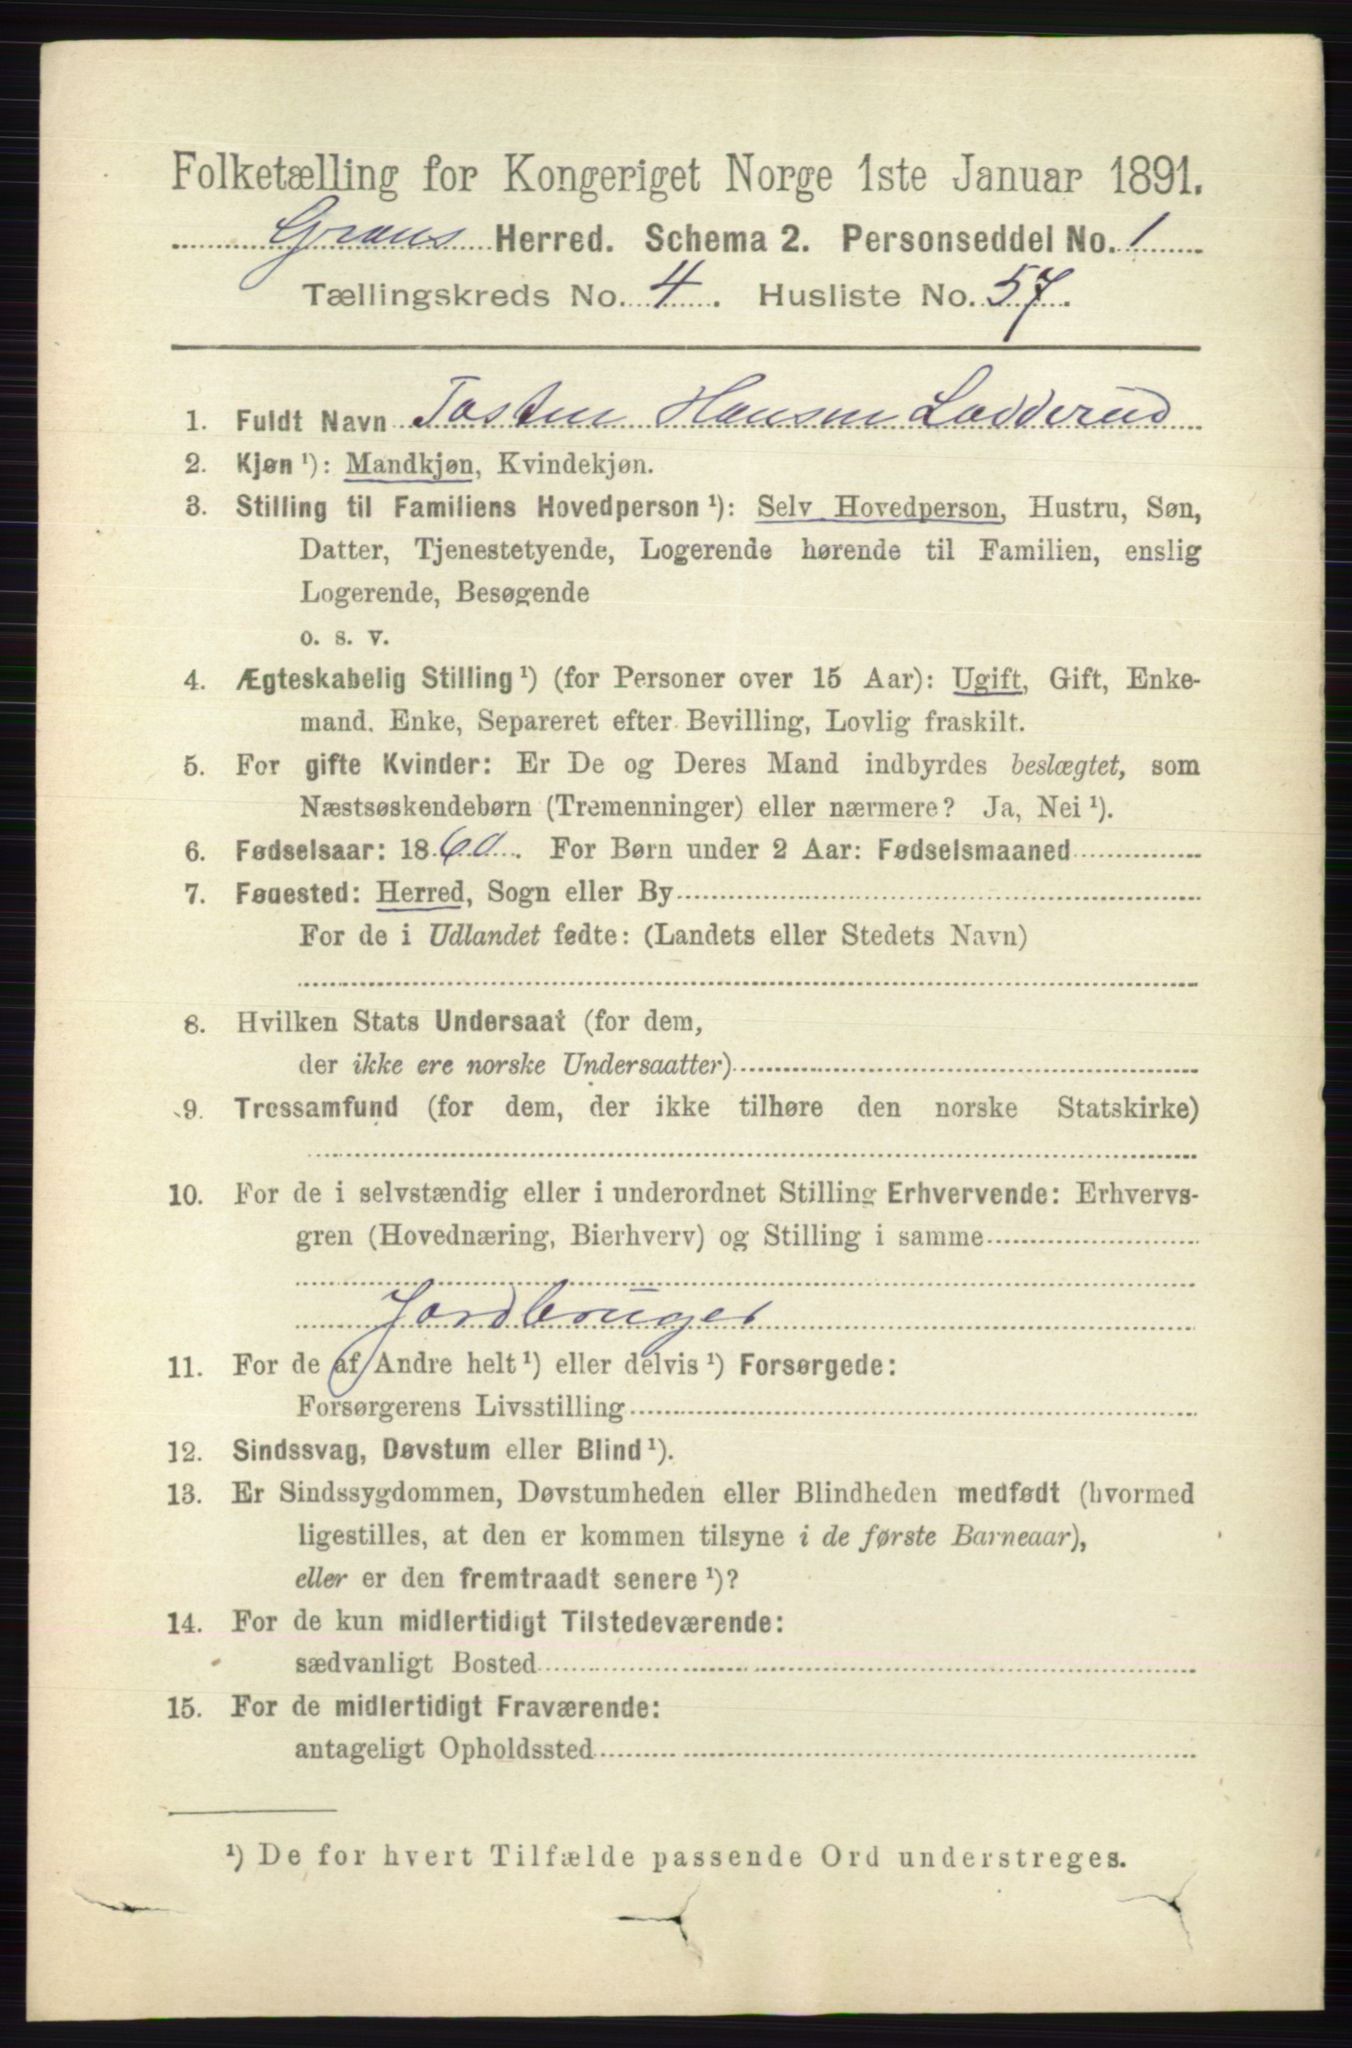 Folketælling for Kongeriget Norge 1ste Januar 1891.
Grans Herred. Schema 2. Personseddel No. 1
Tællingskreds No. 4. Husliste No. 57.
1. Fuldt Navn Tosten Hansen Lodderud
2. Kjøn ¹): Mandkjøn, Kvindekjøn.
3. Stilling til Familiens Hovedperson ¹): Selv Hovedperson, Hustru, Søn,
Datter, Tjenestetyende, Logerende hørende til Familien, enslig
Logerende, Besøgende
o. s. v.
4. Ægteskabelig Stilling ¹) (for Personer over 15 Aar): Ugift, Gift, Enke-
mand. Enke, Separeret efter Bevilling, Lovlig fraskilt.
5. For gifte Kvinder: Er De og Deres Mand indbyrdes beslægtet, som
Næstsøskendebørn (Tremenninger) eller nærmere? Ja, Nei ¹).
6. Fødselsaar: 1860. For Børn under 2 Aar: Fødselsmaaned
7. Fødested: Herred, Sogn eller By
For de i Udlandet fødte: (Landets eller Stedets Navn)
8. Hvilken Stats Undersaat (for dem,
der ikke ere norske Undersaatter)
9. Trossamfund (for dem, der ikke tilhøre den norske Statskirke)
10. For de i selvstændig eller i underordnet Stilling Erhvervende: Erhvervs-
gren (Hovednæring, Bierhverv) og Stilling i samme
Jordbruger
11. For de af Andre helt ¹) eller delvis ¹) Forsørgede:
Forsørgerens Livsstilling
12. Sindssvag, Døvstum eller Blind ¹).
13. Er Sindssygdommen, Døvstumheden eller Blindheden medfødt (hvormed
ligestilles, at den er kommen tilsyne i de første Barneaar),
eller er den fremtraadt senere ¹)?
14. For de kun midlertidigt Tilstedeværende:
sædvanligt Bosted
15. For de midlertidigt Fraværende:
antageligt Opholdssted
¹) De for hvert Tilfælde passende Ord understreges.